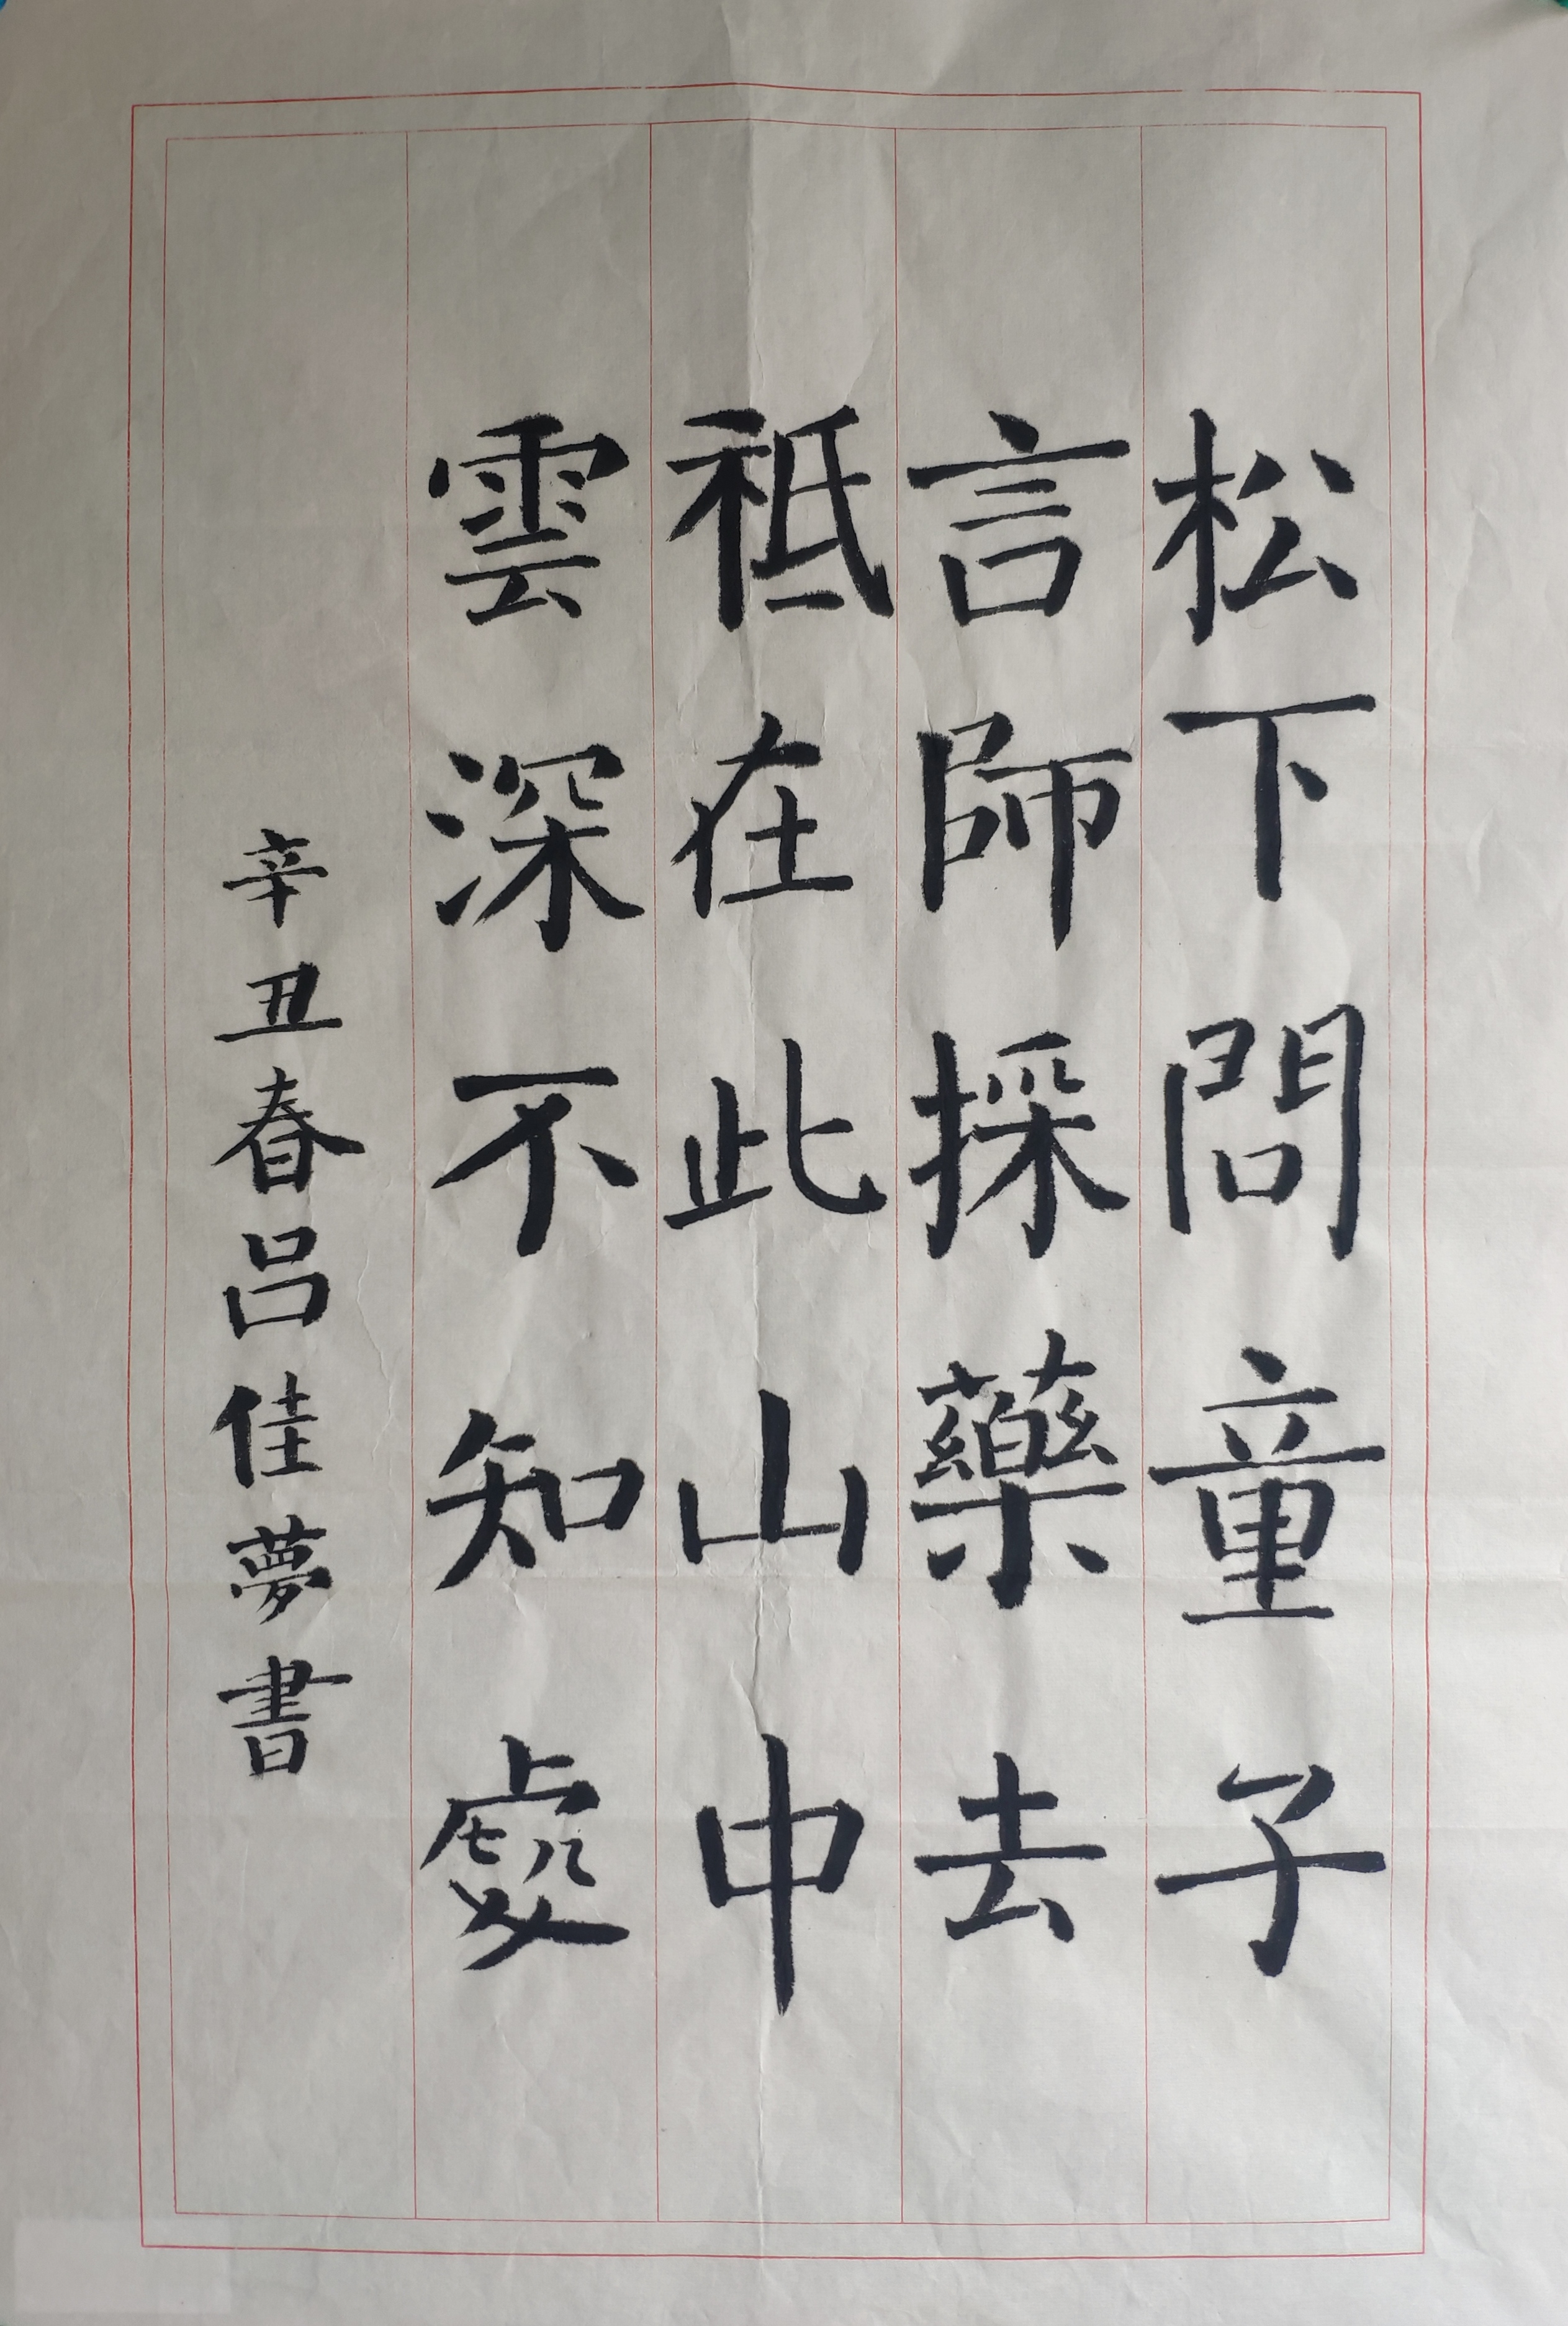 松下問童子
言師採藥去
祗在此山中
雲深不知處
辛丑春呂佳夢書